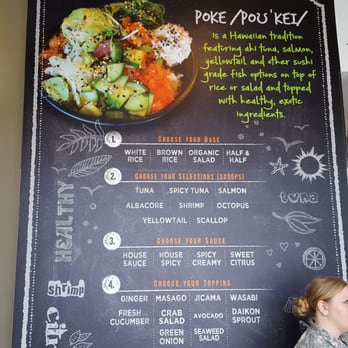 POKE /POU'KEI/
is a Hawaiian tradition
featuring ahi tuna, salmon,
yellowtail and other sushi
grade fish options on top of
rice or salad and topped
with healthy, exotic
ingredients.
1. Choose Your Base
WHITE RICE BROWN RICE ORGANIC SALAD HALF & HALF
2. Choose Your Selections (Scoops)
TUNA SPICY TUNA SALMON
ALBACORE SHRIMP OCTOPUS
YELLOWTAIL SCALLOP
3. Choose Your Sauce
HOUSE SAUCE HOUSE SPICY SPICY CREAMY SWEET CITRUS
4. Choose Your Topping
GINGER MASAGO JICAMA WASABI
FRESH CUCUMBER CRAB SALAD AVOCADO DAIKON SPROUT
GREEN ONION SEAWEED SALAD
HEALTHY
tuna
shrimp